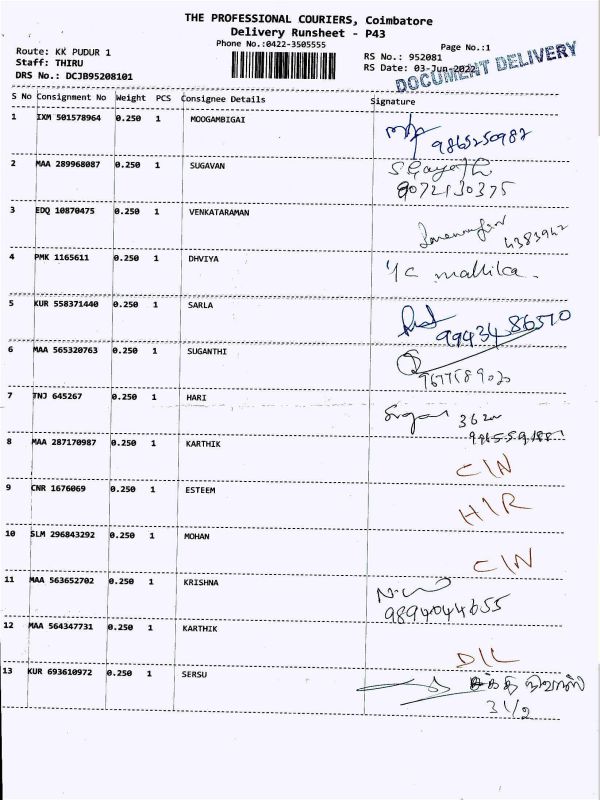 THE PROFESSIONAL COURIERS, Coimbatore
Delivery Runsheet - P43
Phone No.:0422-3505555
Page No.:1
Route: KK PUDUR 1
Staff: THIRU
DRS No.: DCJB95208101
RS No.: 952081
RS Date: 03-Jun-2022
DOCUMENT DELIVERY
S No Consignment No Weight PCS Consignee Details Signature
1 IXM 501578964 0.250 1 MOOGAMBIGAI
9865250987
2 MAA 289968087 0.250 1 SUGAVAN
9072130375
3 EDQ 10870475 0.250 1 VENKATARAMAN
4383942
4 PMK 1165611 0.250 1 DHVIYA
mallika
5 KUR 558371440 0.250 1 SARLA
99434 86570
6 MAA 565320763 0.250 1 SUGANTHI
7 TNJ 645267 0.250 1 HARI
8 MAA 287170987 0.250 1 KARTHIK
C/N
9 CNR 1676069 0.250 1 ESTEEM
H/R
10 SLM 296843292 0.250 1 MOHAN
C/N
11 MAA 563652702 0.250 1 KRISHNA
9894044655
12 MAA 564347731 0.250 1 KARTHIK
D/L
13 KUR 693610972 0.250 1 SERSU
31/2